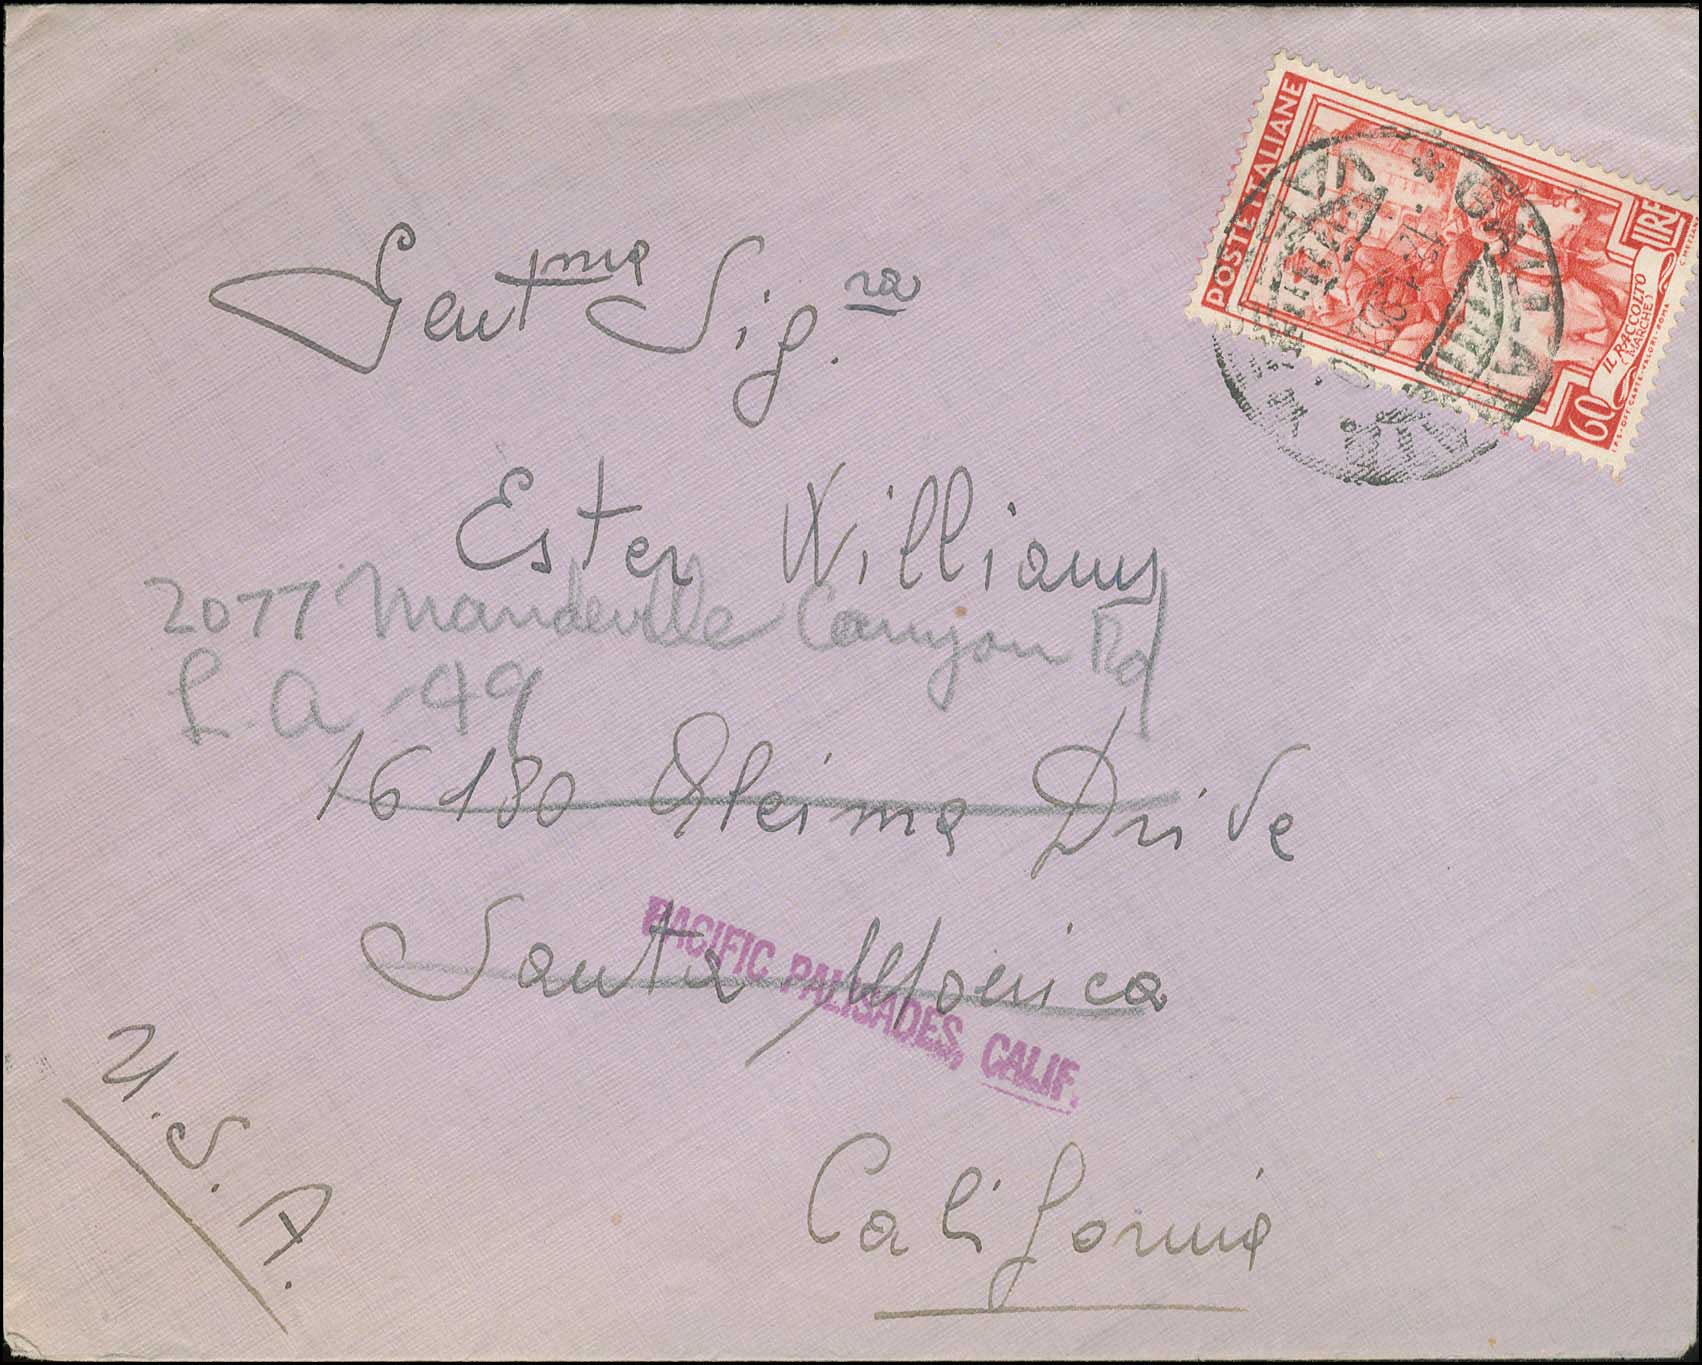 POSTE ITALIANE
LIRE
60
IL RACCOLTO
(MARCHE)
I.P.S.-OFF. CARTE-VALORI-ROMA
Gent.ma Sig.ra
Ester Williams
2077 Mandeville Canyon Rd
L.A -49
16180 Drive
Santa Monica
PACIFIC PALISADES, CALIF.
California
U.S.A.